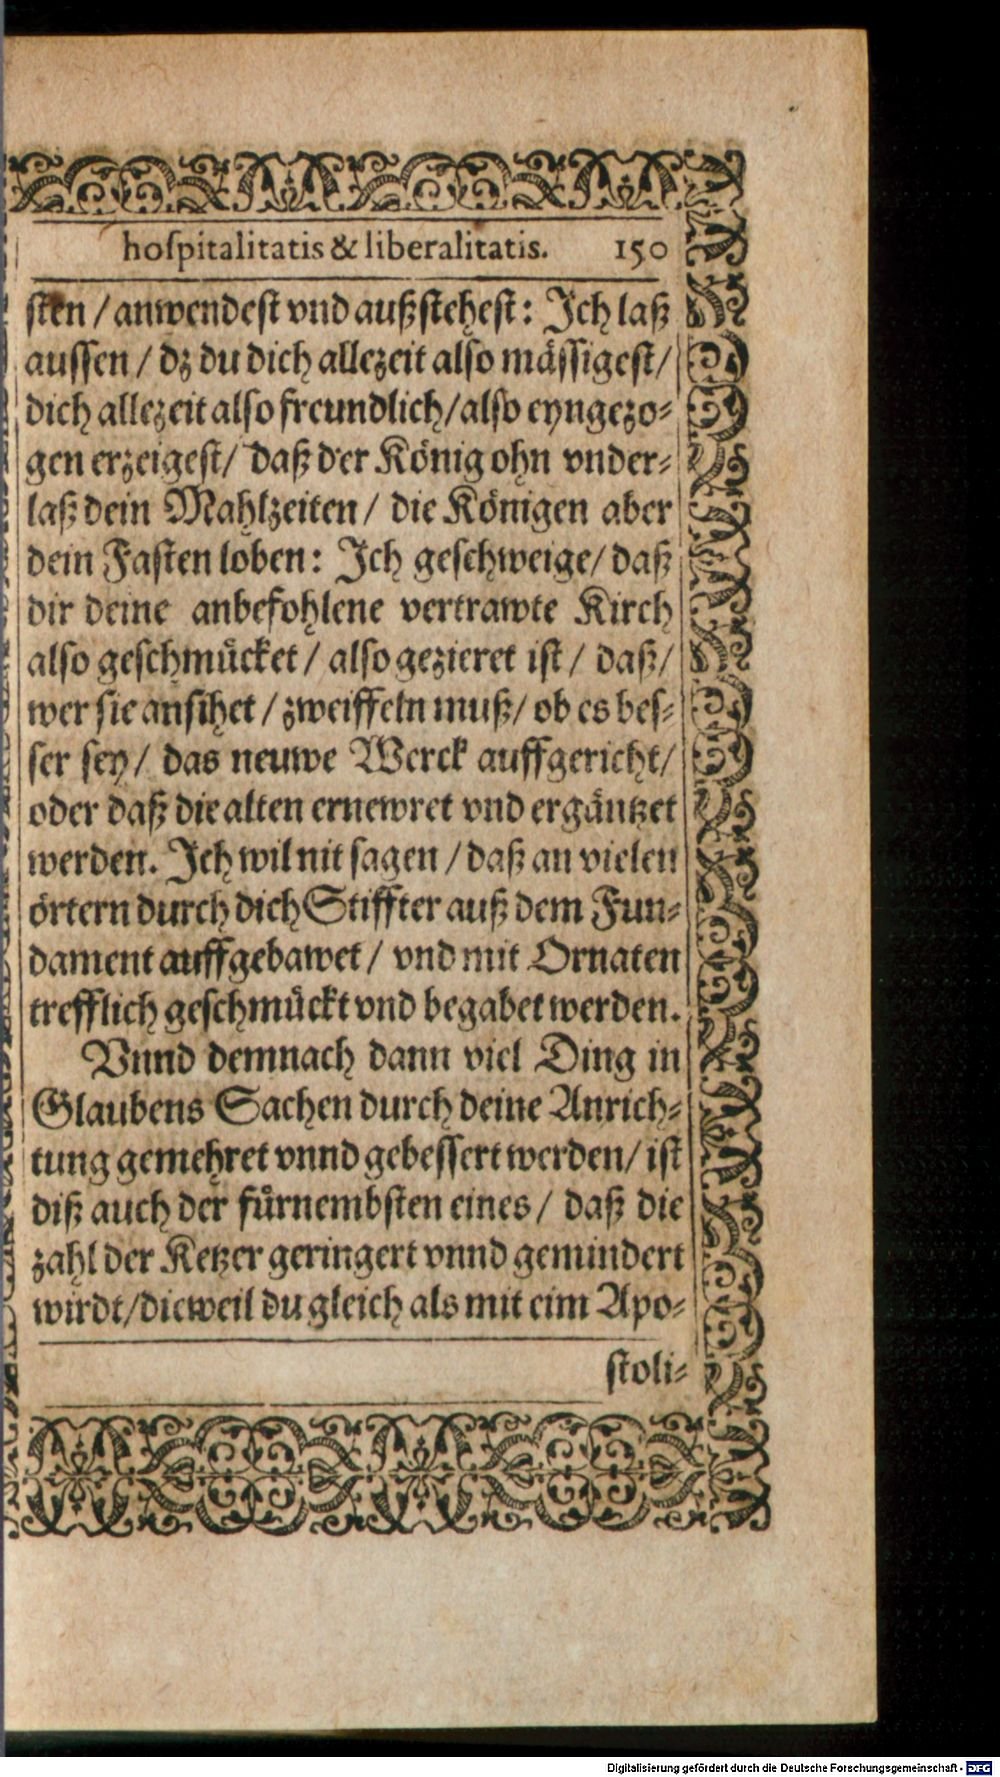 hoſpitalitatis & liberalitatis. 150
ſten / anwendeſt vnd außſteheſt: Ich laß
auſſen / dz du dich allezeit alſo mäſſigeſt /
dich allezeit alſo freundlich / alſo eyngezo⸗
gen erzeigeſt / daß der König ohn vnder⸗
laß dein Mahlzeiten / die Königen aber
dein Faſten loben: Ich geſchweige / daß
dir deine anbefohlene vertrawte Kirch
alſo geſchmücket / alſo gezieret iſt / daß /
wer ſie anſihet / zweiffeln muß / ob es beſ⸗
ſer ſey / das neuwe Werck auffgericht /
oder daß die alten ernewret vnd ergäntzet
werden. Ich wil nit ſagen / daß an vielen
örtern durch dich Stiffter auß dem Fun⸗
dament auffgebawet / vnd mit Ornaten
trefflich geſchmückt vnd begabet werden.
Vnnd demnach dann viel Ding in
Glaubens Sachen durch deine Anrich⸗
tung gemehret vnnd gebeſſert werden / iſt
diß auch der fürnembſten eines / daß die
zahl der Ketzer geringert vnnd gemindert
wirdt / dieweil du gleich als mit eim Apo⸗
ſtoli⸗
Digitalisierung gefördert durch die Deutsche Forschungsgemeinschaft - DFG